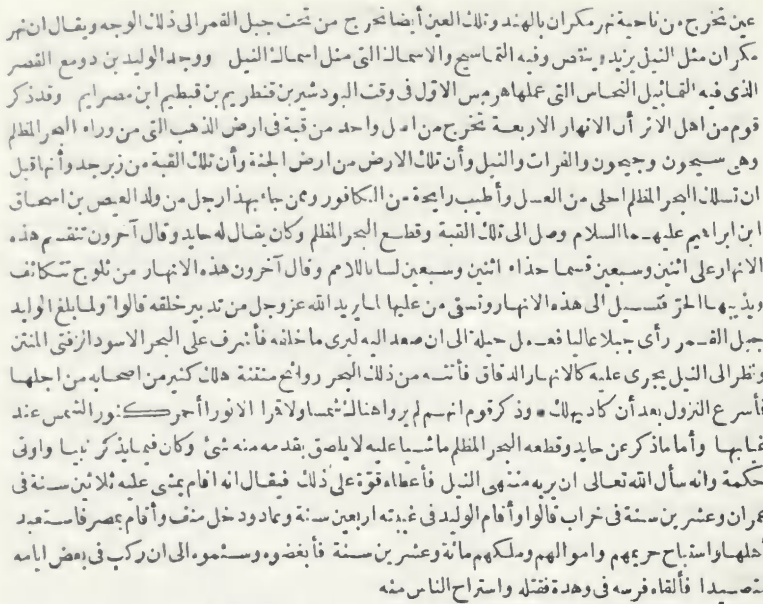 عين تخرج من ناحية نهر مكران بالهند وتلك العين أيضا تخرج من تحت جبل القمر الى ذلك الوجه ويقال ان نهر
مكران مثل النيل يزيد وينقص وفيه التماسيح والاسماك التى مثل اسماك النيل ووجد الوليد بن دومع القصر
الذى فيه التماثيل النحاس التى عملها هرمس الاول فى وقت البودشير بن قنطريم بن قبطيم ابن مصرايم وقد ذكر
قوم من اهل الاثر أن الانهار الاربعة تخرج من اصل واحد من قبة فى ارض الذهب التى من وراء البحر المظلم
وهى سيحون وجيحون والفرات والنيل وأن تلك الارض من ارض الجنة وأن تلك القبة من زبرجد وأنها قبل
ان تسلك البحر المظلم احلى من العسل وأطيب رايحة من الكافور وممن جاء بهذا رجل من ولد العيص بن اسحاق
ابن ابراهيم عليهما السلام وصل الى تلك القبة وقطع البحر المظلم وكان يقال له حايد وقال آخرون تنقسم هذه
الانهار على اثنين وسبعين قسما حذاء اثنين وسبعين لسانا للامم وقال آخرون هذه الانهار من ثلوج تتكاثف
ويذيبها الحر فتسيل الى هذه الانهار وتسقى من عليها لما يريد الله عز وجل من تدبير خلقه قالوا ولما بلغ الوليد
جبل القمر رأى جبلا عاليا فعمل حيلة الى ان صعد اليه ليرى ما خلفه فأشرف على البحر الاسود الزفتى المنتن
ونظر الى النيل يجرى عليه كالانهار الدقاق فأتته من ذلك البحر روائح منتنة هلك كثير من اصحابه من اجلها
فأسرع النزول بعد أن كاد يهلك • وذكر قوم انهم لم يروا هناك شمسا ولا قمرا الا نورا أحمر كنور الشمس عند
غيابها وأما ماذكر عن حايد وقطعه البحر المظلم ماشيا عليه لا يلصق بقدمه منه شئ وكان فيما يذكر نبيا واوتى
حكمة وانه سأل الله تعالى ان يريه منتهى النيل فأعطاه قوة على ذلك فيقال انه اقام يمشى عليه ثلاثين سنة فى
عمران وعشرين سنة فى خراب قالوا وأقام الوليد فى غيبته اربعين سنة وعاد ودخل منف وأقام بمصر فاستعبد
أهلها واستباح حريمهم واموالهم وملكهم مائة وعشرين سنة فأبغضوه وسئموه الى ان ركب فى بعض ايامه
متصيدا فألقاه فرسه فى وهدة فقتله واستراح الناس منه